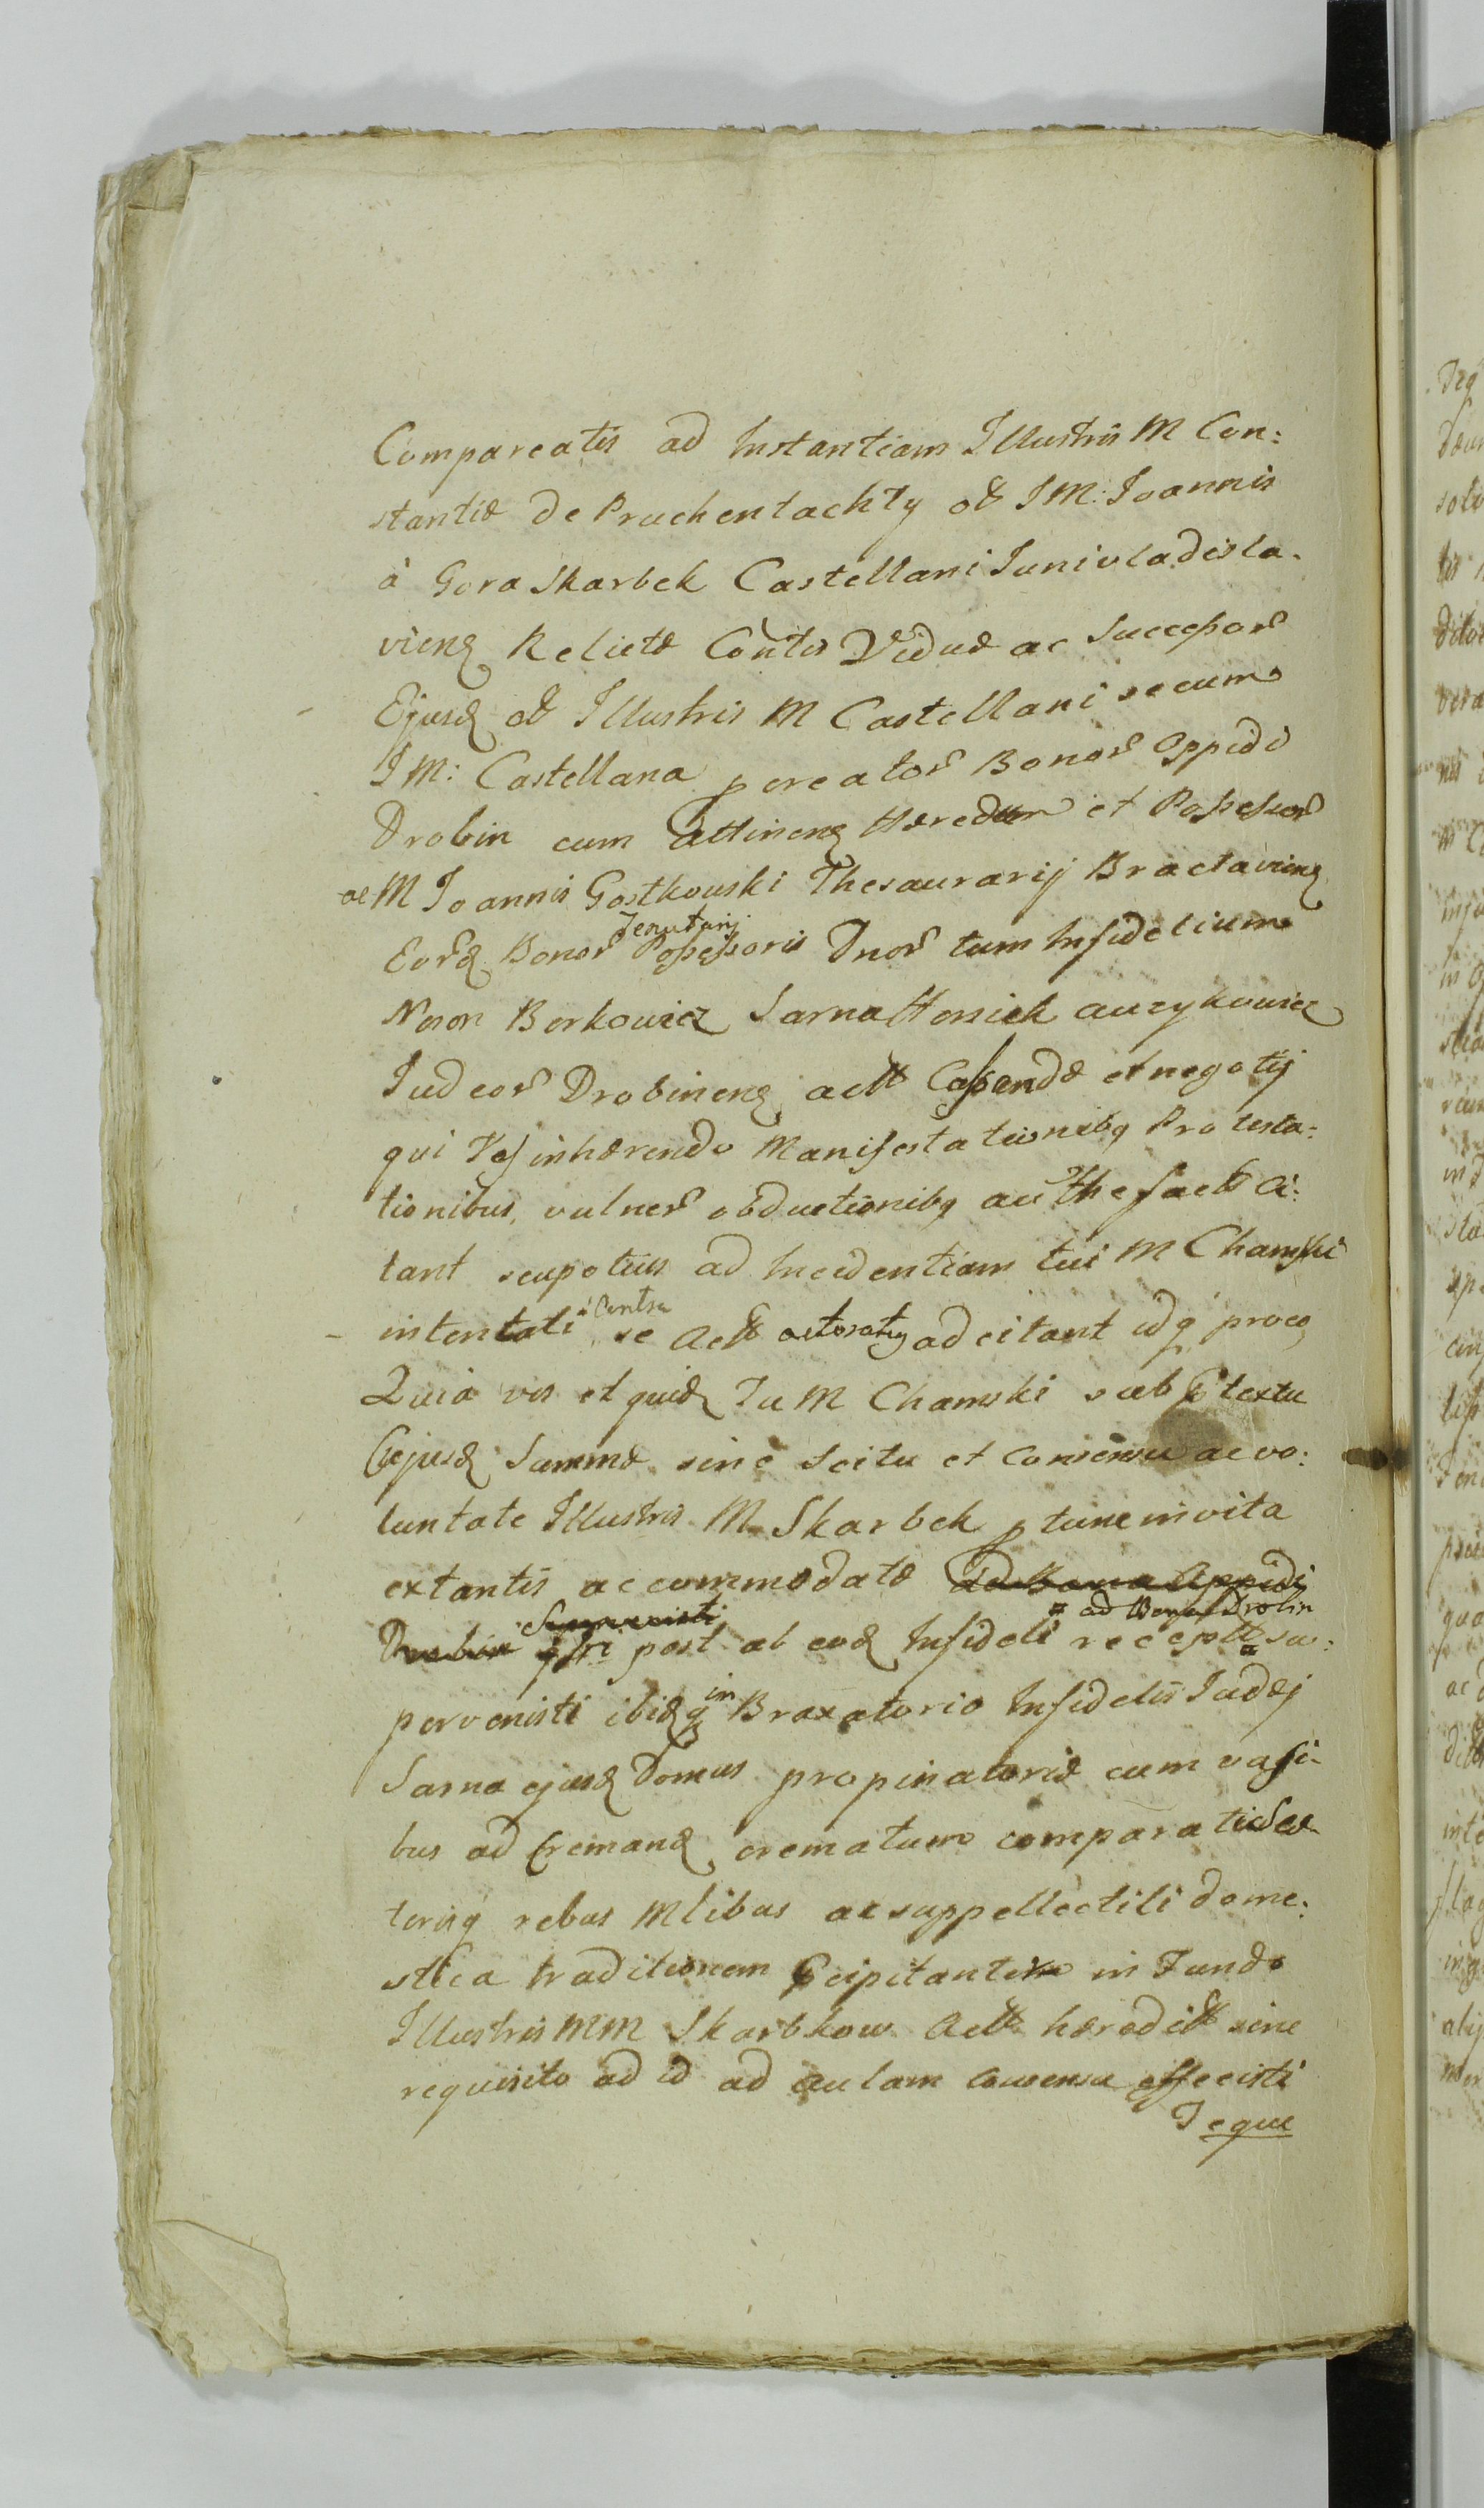 Compareatis ad Instantiam Illustris M Con:
stantiæ de Pruchentachty olt IM: Joannis
à Gora Skarbek Castellani Junivladisla-
vienę Relictæ Contis Viduæ ac Successor
Ejusdę olt Illustris M Castellani secum
IM: Castellana p creator Bonor Oppidi
Drobin cum attinenę Hæredum et Possessor
ac M Joannis Gostkowski Thesaurarij Braclavienę
Tenutarij
Eordę Bonor Possessoris Dnor tum Infidelium
Noson Berkowicz Sarna Hersiek
Judeor Drobinenę actt Causandæ et negotij
qui Vos inhærendo Manifestationibq Protesta:
tionibus, vulner obductionibq au the factt Ci:
tant seu potius ad Incidentiam tui M Chamski
intentati Contra se Actt actoratq adcitant idq proco
Quia vos et quidę Tu M Chamski sub Ptextu
Cujusdę Summæ sine Scitu et Consensu ac vo:
luntate Illustris M Skarbek p tunc in vita
extantis accommodatæ ad Bona Oppidi
Drobin post ab eodę Infideli receptæ su:
ad Bona Drobin
pervenisti ibidęq in Braxatorio Infidelis Judęj
Sarna ejusdę Domus propinatoriæ cum vasi-
bus ad Cremandę crematum comparatis Cæ
terisq rebus Mlibus ac suppellectili dome:
stica traditionem Pcipitantem in Fundo
Illustris MM Skarbkow Actt hæreditt sine
requisito ad id ad aulam Consensu effecisti
Teque